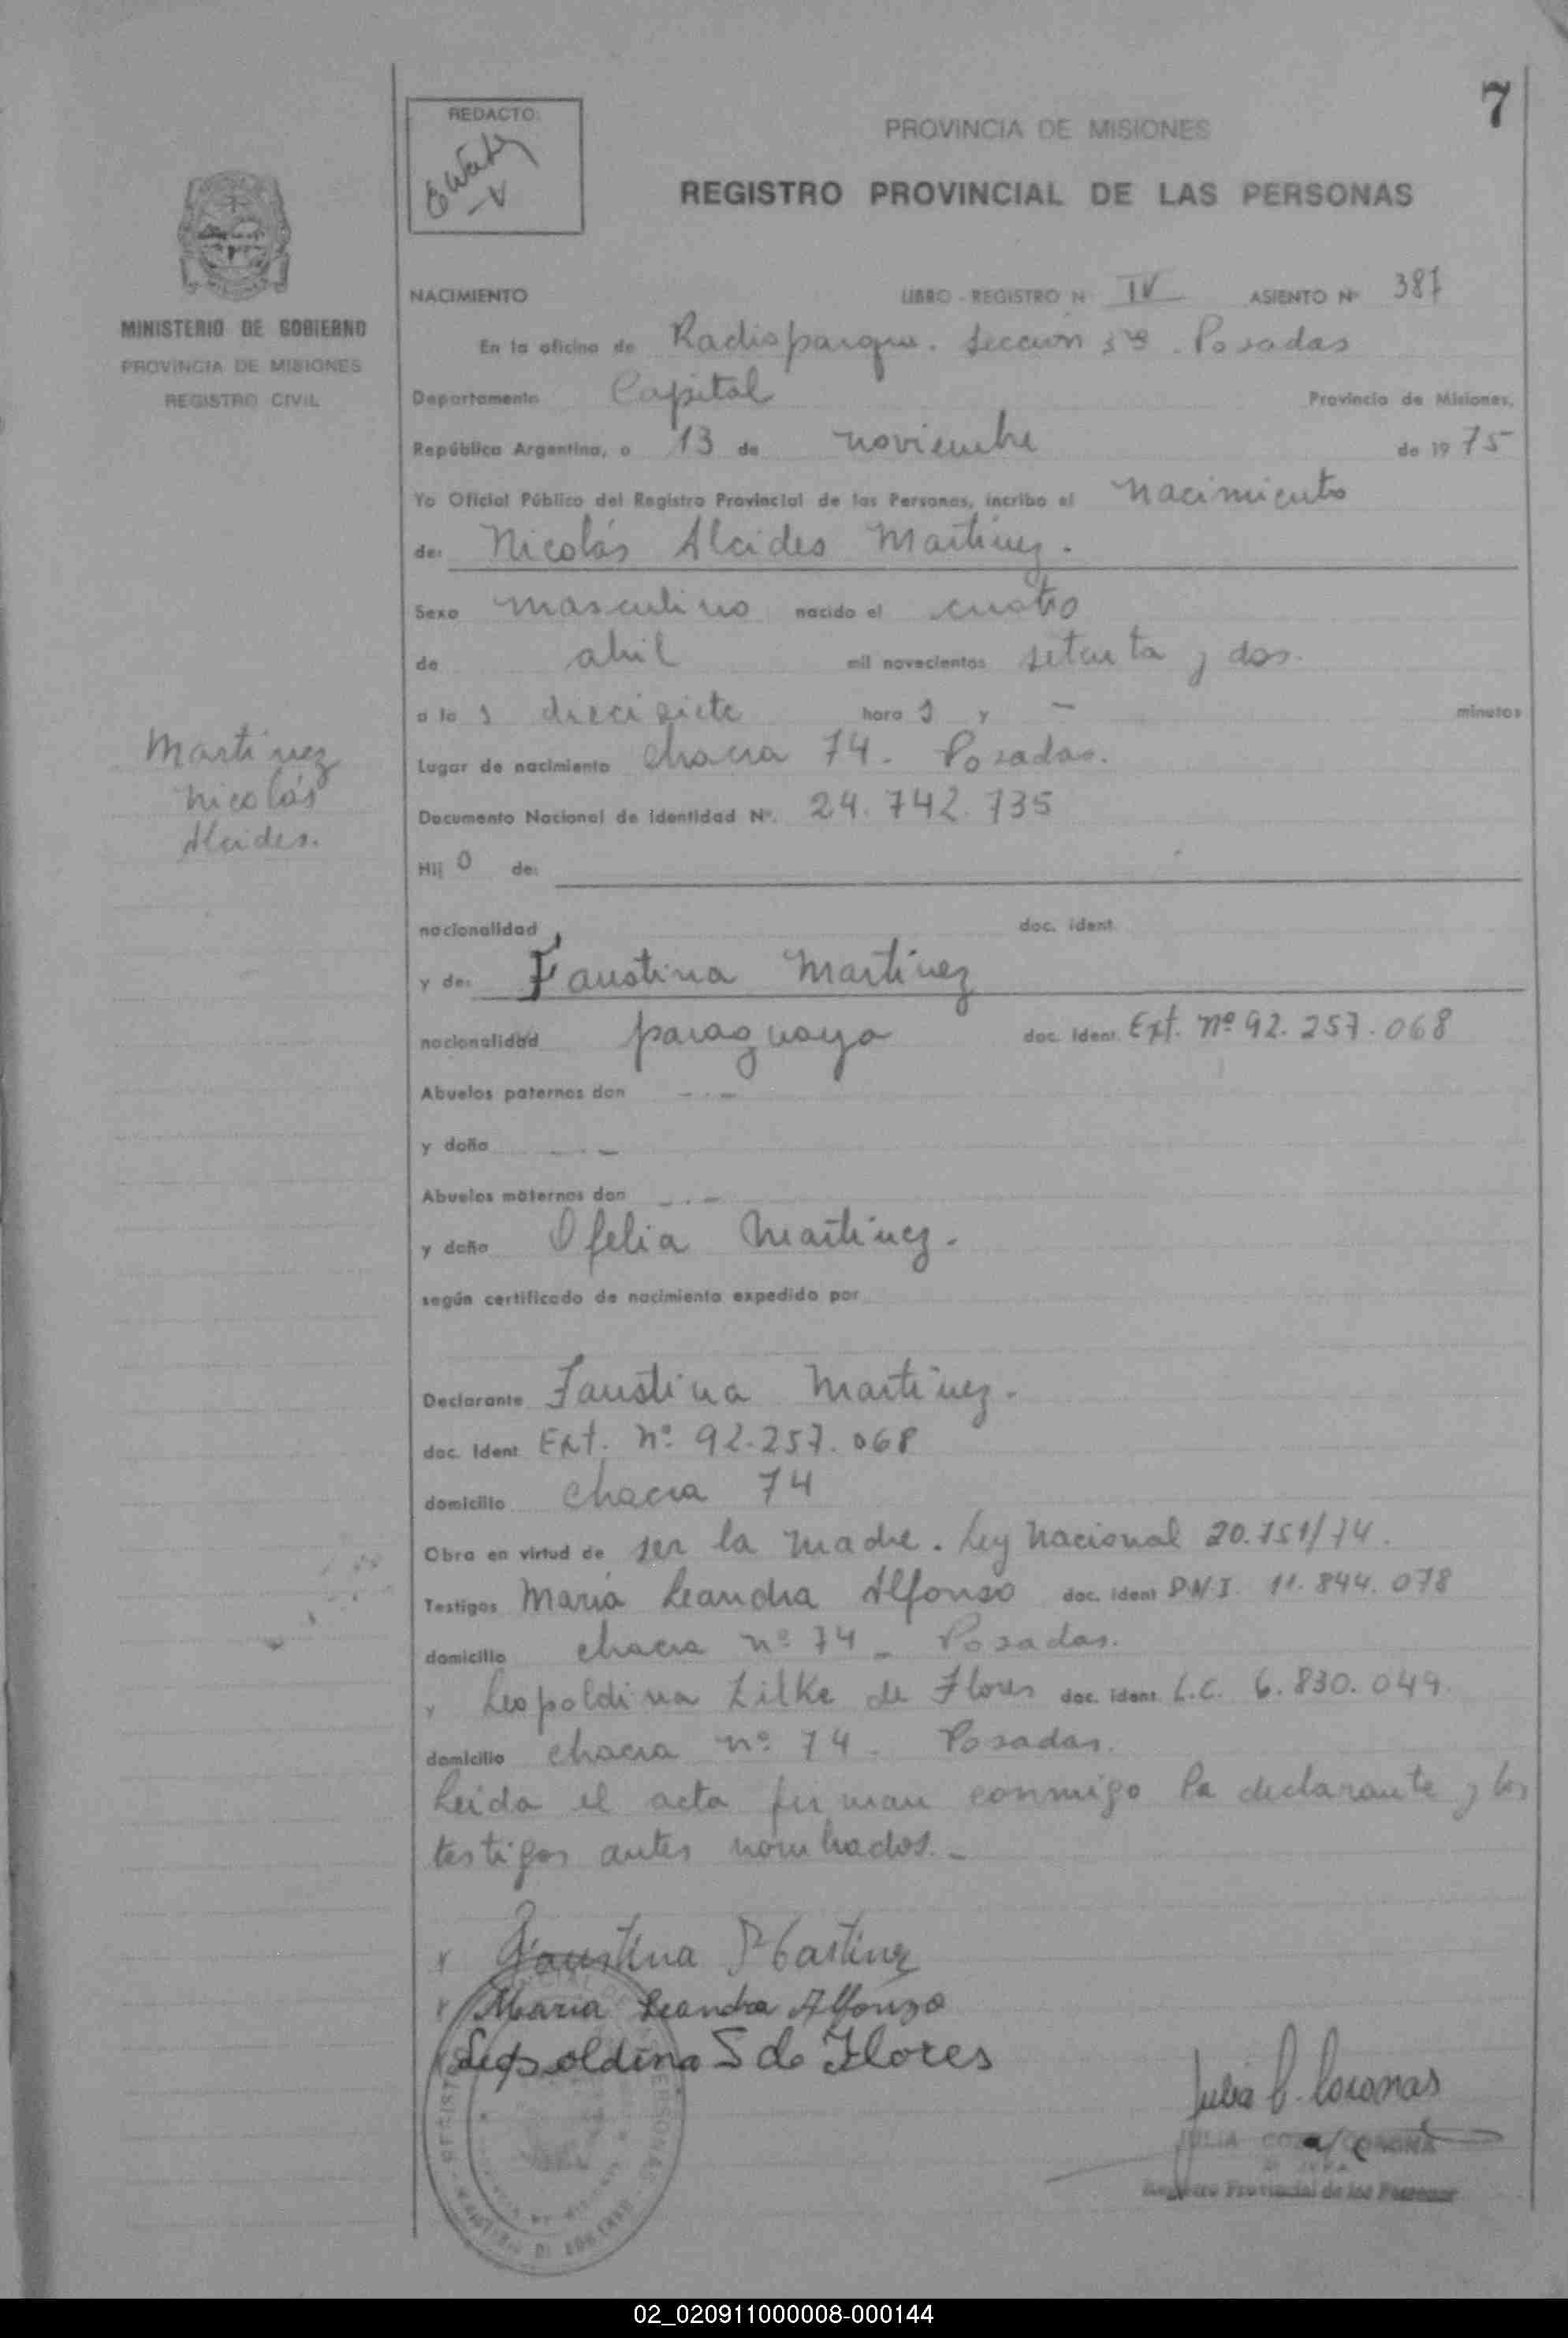 7
REDACTO:
PROVINCIA DE MISIONES
REGISTRO PROVINCIAL DE LAS PERSONAS
MINISTERIO DE GOBIERNO
PROVINCIA DE MISIONES
REGISTRO CIVIL
NACIMIENTO LIBRO - REGISTRO N IV ASIENTO Nº 387
En la oficina de Radioparque. Sección 5ª. Posadas
Departamento Capital Provincia de Misiones,
República Argentina, a 13 de noviembre de 1975
Yo Oficial Público del Registro Provincial de las Personas, incribo el nacimiento
de: Nicolás Alcides Martínez.
Sexo masculino nacido el cuatro
de abril mil novecientos setenta y dos.
a las diecisiete horas y — minutos
Lugar de nacimiento chacra 74. Posadas.
Documento Nacional de Identidad Nº. 24.742.735
Martínez
Nicolás
Alcides.
Hijo de:
nacionalidad doc. ident.
y de: Faustina Martínez
nacionalidad paraguaya doc. ident. Ext. nº 92.257.068
Abuelos paternos don - . -
y doña - . -
Abuelos maternos don - . -
y doña Ofelia Martínez.
según certificado de nacimiento expedido por
Declarante Faustina Martínez.
doc. Ident Ext. nº 92.257.068
domicilio chacra 74
Obra en virtud de ser la madre. Ley Nacional 20.751/74.
Testigos María Leandra Alfonso doc. ident D.N.I. 11.844.078
domicilio chacra nº 74 - Posadas.
y Leopoldina Zilke de Flores doc. ident. L.C. 6.830.049.
domicilio chacra nº 74. Posadas.
Leida el acta firman conmigo la declarante y los
testigos antes nombrados. -
Faustina Martinez
Maria Leandra Alfonso
Leopoldina S de Flores
Julia C. Coronas
Registro Provincial de las Personas
02_020911000008-000144